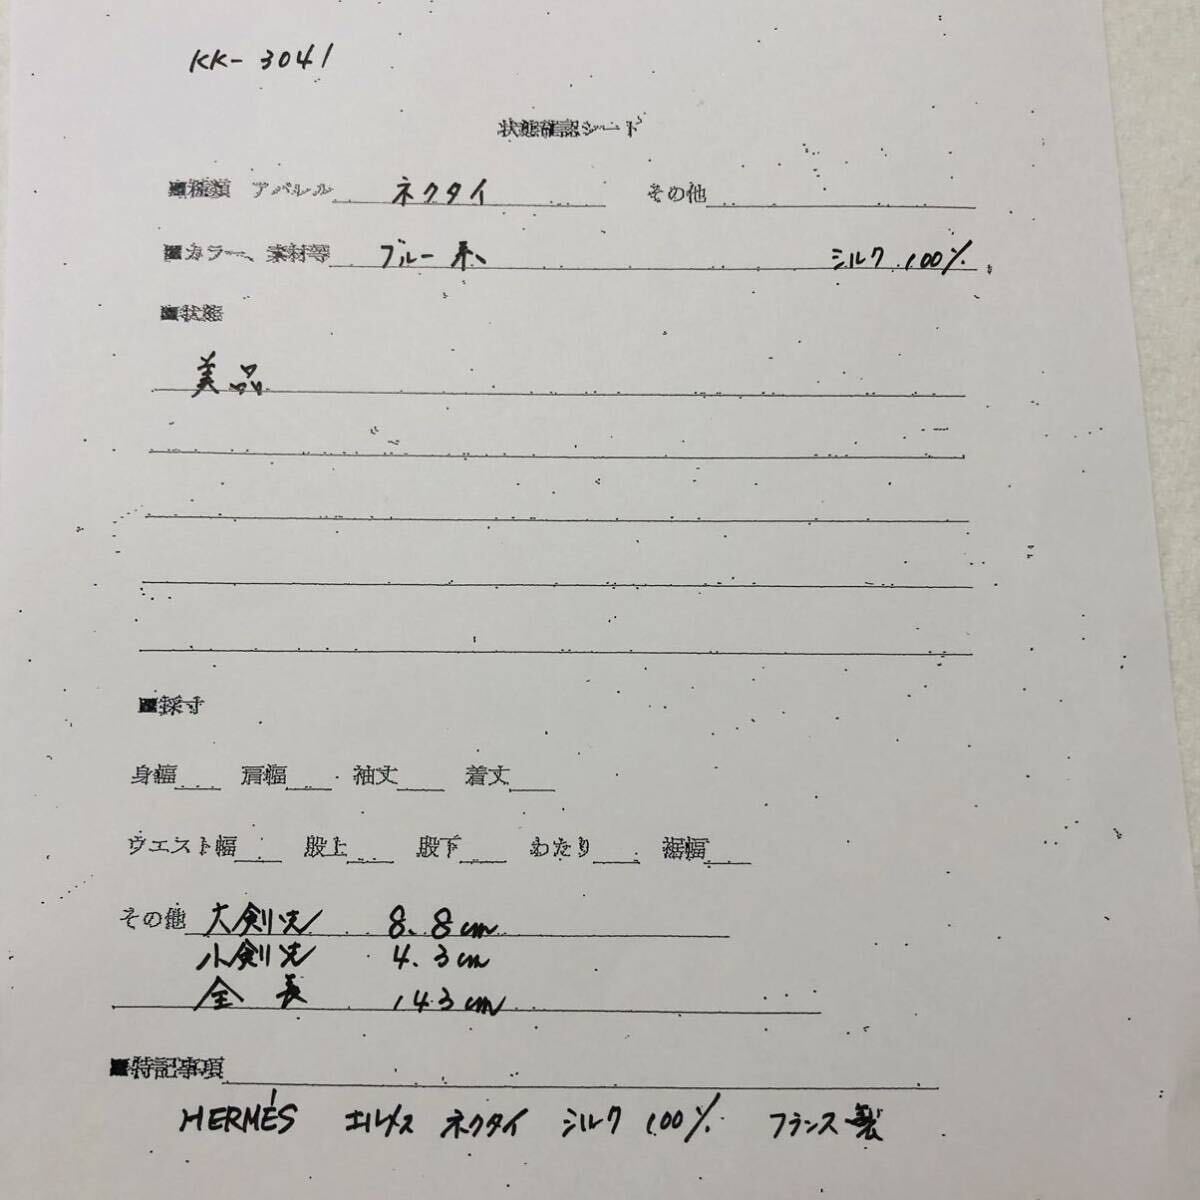 KK-3041
状態確認シート
■種類 アパレル ネクタイ その他
■カラー、素材等 ブルー系、 シルク 100%
■状態
美品
■採寸
身幅 肩幅 袖丈 着丈
ウエスト幅 股上 股下 わたり 裾幅
その他 大剣先 8.8cm
小剣先 4.3cm
全長 143cm
■特記事項
HERMÉS エルメス ネクタイ シルク 100% フランス製